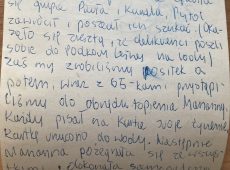 się grupa Pawła i Kamila, Pytol
zawrócił i poszedł ich szukać (oka-
zało się zresztą, że delikwenci poszli
sobie do Podkowy Leśnej na lody)
zaś my zrobiliśmy posiłek a
potem, wraz z 65-kami przystąpi-
liśmy do obrzędu topienia Marzanny.
Każdy pisał na kartce swoje życzenie,
kartkę wrzucono do wody. Następnie
Marzanna pożegnała się ze wszys-
dokonała